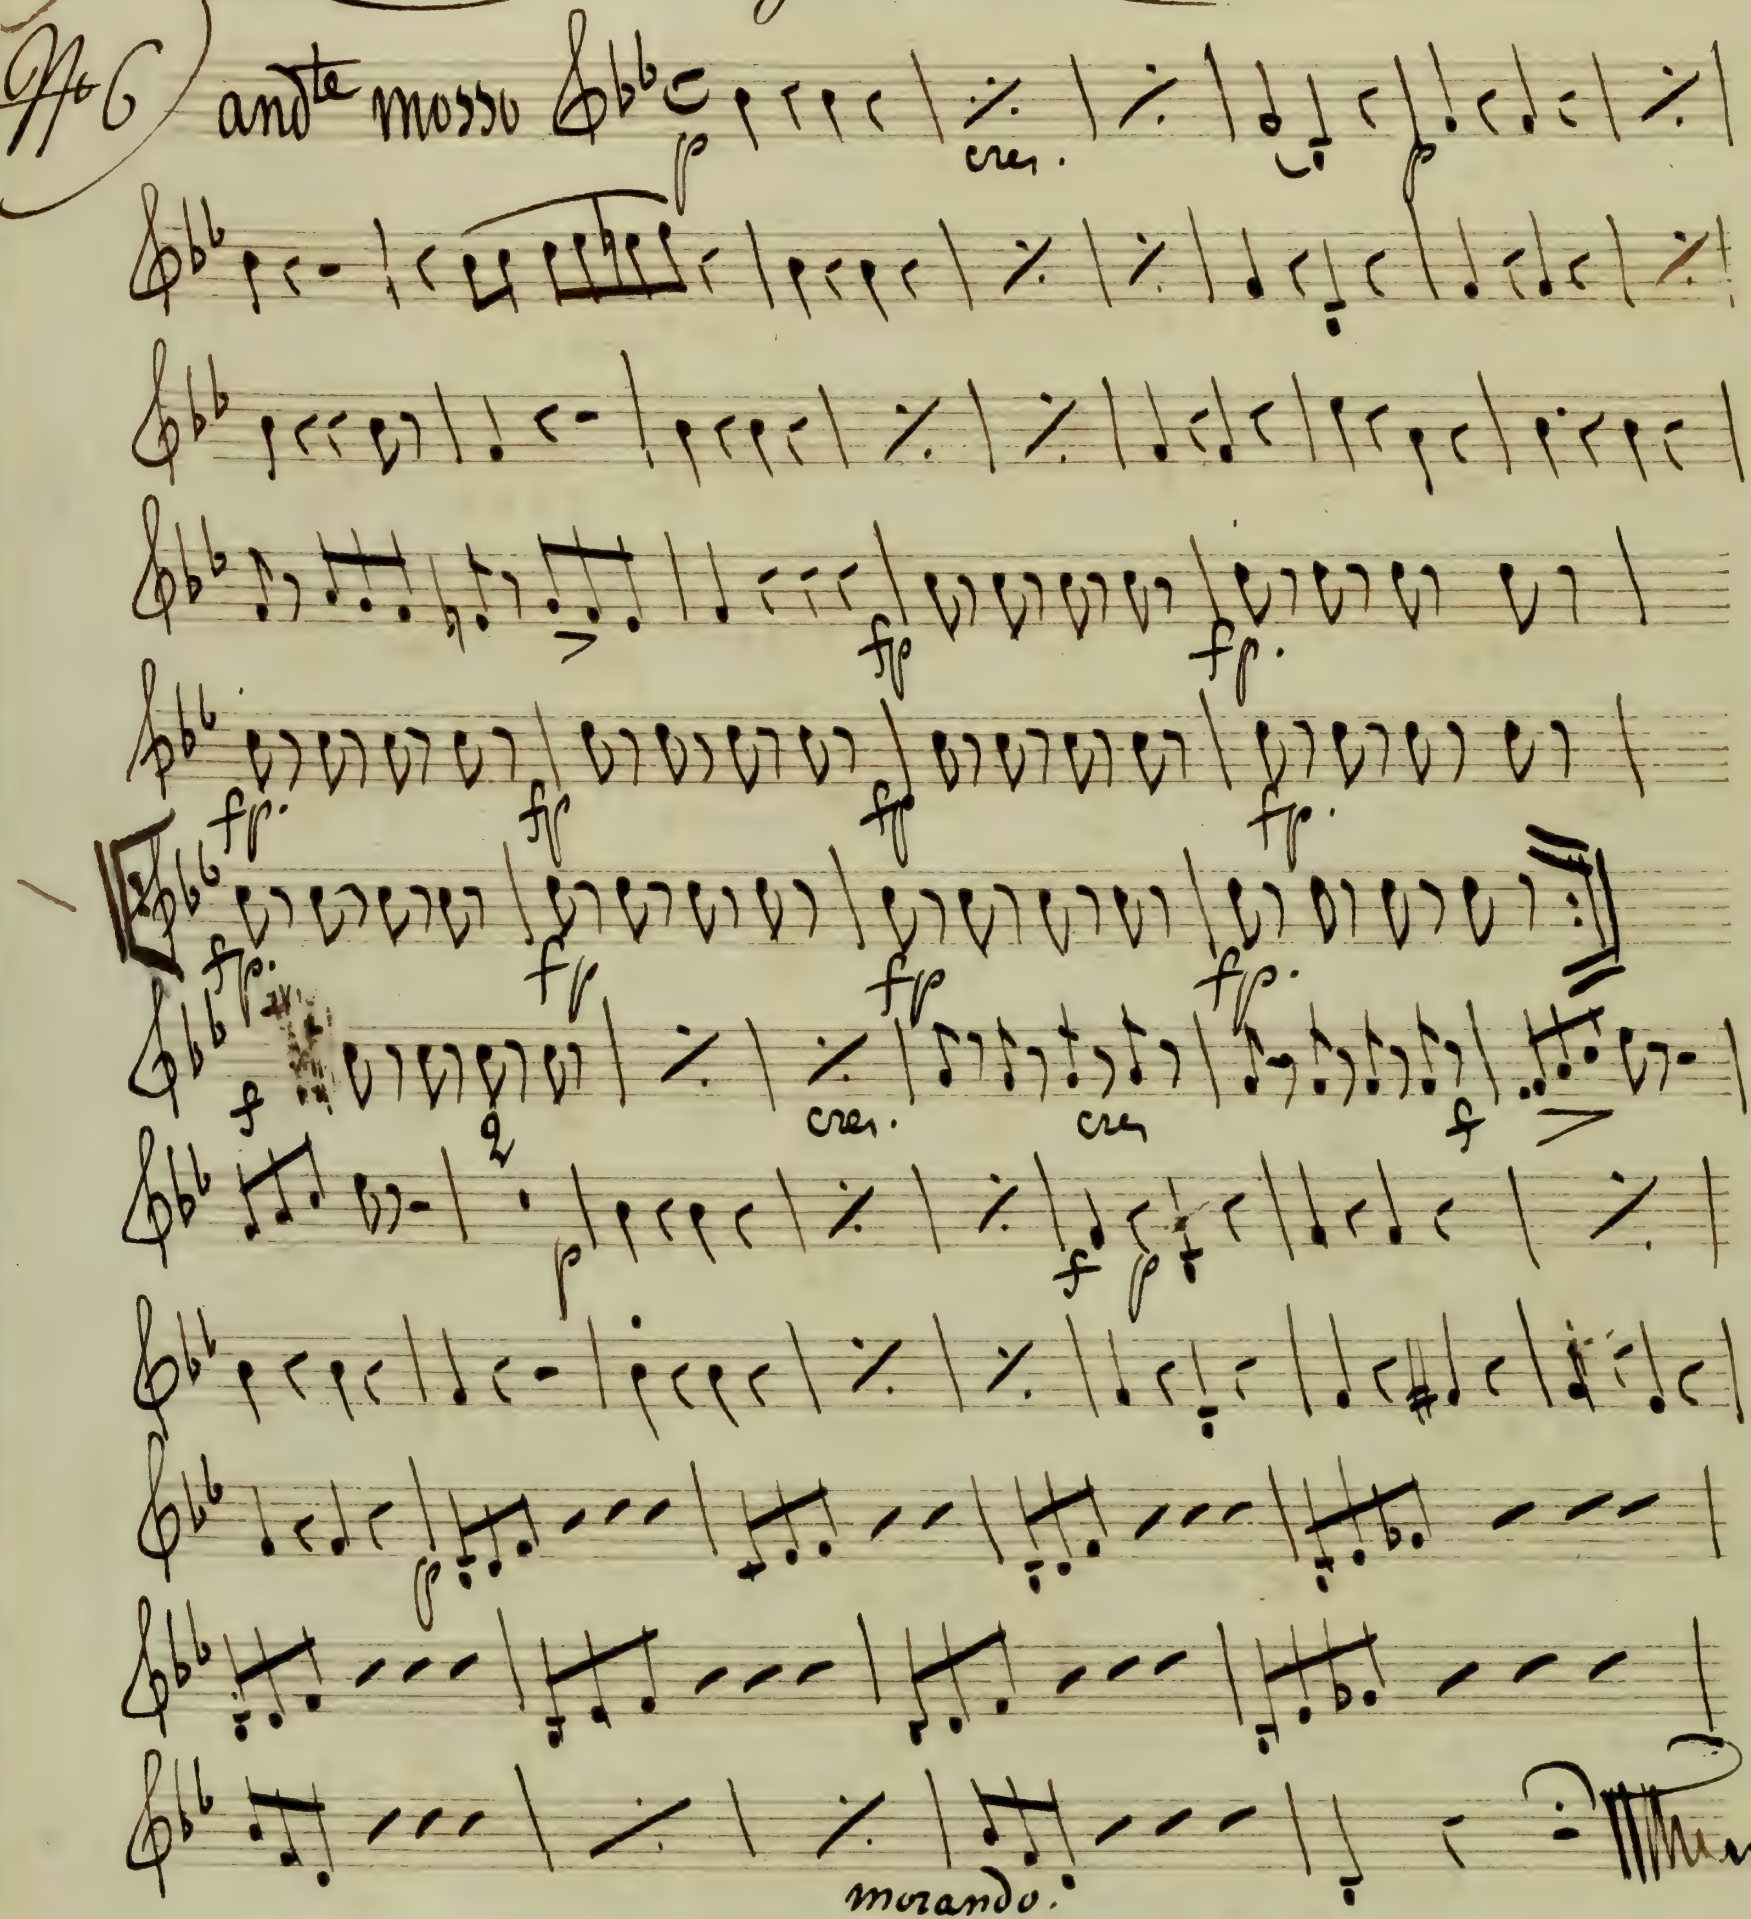 No 6 andte mosso p cres. p
fp fp.
fp. fp fp fp.
fp. fp fp fp.
f 2 cres. cres f
p f p
p
morando.